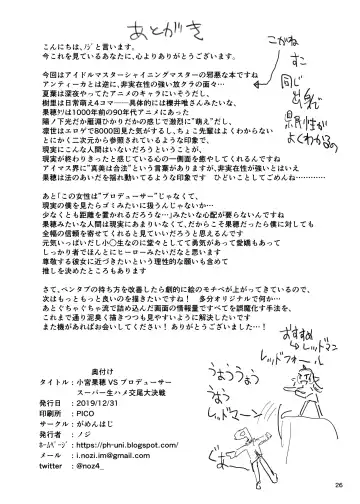 あとがき
こんにちは、ﾉｼﾞと言います。
今これを見ているあなたに、心よりありがとうございます。
今回はアイドルマスターシャイニングマスターの邪悪な本ですね
アンティーカとは逆に、非実在性の強い放クラの面々…
夏葉は深夜やってたアニメのキャラにいそうだし、
樹里は日常萌え4コマ――具体的には櫻井唯さんみたいな、
果穂ｸﾘは1000年前の90年代アニメにあった
陽ノ下光だか雇淵ひかりだかの感じで激烈に"萌え"だし、
凛世はエロゲで8000回見た気がするし、ちょこ先輩はよくわからない
とにかく二次元から参照されているような印象で、
現実にこんな人間はいないだろうということが、
現実が終わりきったと感じている心の一側面を癒やしてくれるんですね
アイマス界に"真美は合法"という言葉がありますが、非実在性が強いとはいえ
果穂は法のあいだを揺れ動いてるような印象です　ひどいことしてごめんね…………
あと「この女性は"プロデューサー"じゃなくて、
現実の僕を見たらゴミみたいに扱うんじゃないか…
少なくとも距離を置かれるだろうな…」みたいな心配が要らないんですね
果穂みたいな人間は現実にあまりいなくて、だからこそ果穂だったら僕に対しても
全幅の信頼を寄せてくれると見ていいだろうと思えるんです
元気いっぱいだし小○生なのに堂々としてて勇気があって愛嬌もあって
しっかり者でほんとにヒーローみたいだなと思います
尊敬する彼女に近づきたいという理性的な願いも含めて
推しを決めたところもあります
さて、ペンタブの持ち方を改善したら劇的に絵のモチベが上がってきているので、
次はもっともっと良いのを描きたいですね！　多分オリジナルで何か…
あとぐちゃぐちゃ流で詰め込んだ画面の情報量ですべてを誤魔化す手法を、
これまで通り泥臭く描きつつも見やすいように解決したいです
また機があればお会いしてください！ ありがとうございました…！
こがね
すこ
同じ
よくわかるの
おすすめ
レッドマン
レッドフォール
うょううょう
レッドマーン
奥付け
タイトル：小宮果穂 VS プロデューサー
スーパー生ハメ交尾大決戦
発行日　：2019/12/31
印刷所　：PICO
サークル：がめんはじ
発行者　：ノジ
ﾎｰﾑﾍﾟｰｼﾞ：https://ph-uni.blogspot.com/
メール　：i.nozi.im@gmail.com
twitter　：@noz4_
26